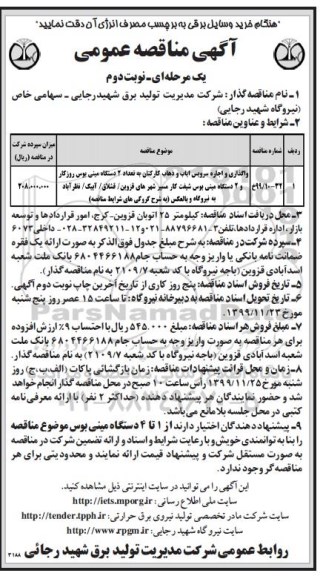 "هنگام خرید وسایل برقی به برچسب مصرف انرژی آن دقت نمایید"
آگهی مناقصه عمومی
یک مرحله‌ای ـ نوبت دوم
۱ـ نام مناقصه گذار: شرکت مدیریت تولید برق شهیدرجایی ـ سهامی خاص
(نیروگاه شهید رجایی)
۲ـ شرایط و عناوین مناقصه:
ردیف شماره مناقصه موضوع مناقصه میزان سپرده شرکت در مناقصه (ریال)
واگذاری و اجاره سرویس ایاب و ذهاب کارکنان به تعداد ۲ دستگاه مینی بوس روزکار
و ۲ دستگاه مینی بوس شیفت کار مسیر شهر های قزوین / قشلاق / آبیک / نظرآباد
به نیروگاه و بالعکس (به شرح گروکی های شرایط مناقصه)
۳ـ محل دریافت اسناد مناقصه: کیلومتر ۲۵ اتوبان قزوین ـ کرج، امور قراردادها و توسعه
بازار، اداره قراردادها، تلفن ۳ـ۸۸۷۹۶۶۸۱-۰۲۱ و ۱۲-۳۲۸۴۹۲۱۱-۰۲۸ داخلی ۶۰۷۳
۴ـ سپرده شرکت در مناقصه: به شرح مبلغ جدول فوق الذکر به صورت ارائه یک فقره
ضمانت نامه بانکی یا واریز وجه به حساب جام ۶۸۰۴۴۶۶۱۸۸ بانک ملت شعبه
اسدآبادی قزوین (باجه نیروگاه با کد شعبه ۲۱۰۹/۷ به نام مناقصه گذار).
۵ـ تاریخ فروش اسناد مناقصه: پنج روز کاری از تاریخ آخرین چاپ نوبت دوم آگهی.
۶ـ تاریخ تحویل اسناد مناقصه به دبیرخانه نیروگاه: تا ساعت ۱۵ عصر روز پنج شنبه
مورخ ۱۳۹۹/۱۱/۲۳
۷ـ مبلغ فروش هر اسناد مناقصه: مبلغ ۵۴۵.۰۰۰ ریال با احتساب ۹٪ ارزش افزوده
برای هر مناقصه به صورت واریز وجه به حساب جام ۶۸۰۴۴۶۶۱۸۸ بانک ملت
شعبه اسدآبادی قزوین (باجه نیروگاه با کد شعبه ۲۱۰۹/۷) به نام مناقصه گذار.
۸ـ زمان و محل قرائت پیشنهادات مناقصه: زمان بازگشائی پاکات (الف،ب،ج) روز
شنبه مورخ ۱۳۹۹/۱۱/۲۵ رأس ساعت ۱۰ صبح در محل مناقصه گذار انجام خواهد
شد و حضور نمایندگان هر پیشنهاد دهنده (حداکثر ۲ نفر) با ارائه معرفی نامه
کتبی در محل جلسه بلامانع می باشد.
۹ـ پیشنهاد دهندگان اختیار دارند از ۱ تا ۴ دستگاه مینی بوس موضوع مناقصه
را بنا به توانمندی خویش و با رعایت شرایط و اسناد و ارائه تضمین شرکت در مناقصه
به صورت مستقل شرکت و پیشنهاد قیمت ارائه نمایند و محدودیتی برای هر
مناقصه گر وجود ندارد.
این آگهی را می توانید در سایت اینترنتی ذیل مشاهده کنید.
سایت ملی اطلاع رسانی: http://iets.mporg.ir
سایت شرکت مادر تخصصی تولید نیروی برق حرارتی: http://tender.tpph.ir
سایت نیروگاه شهید رجایی: http://www.rpgm.ir
روابط عمومی شرکت مدیریت تولید برق شهید رجائی